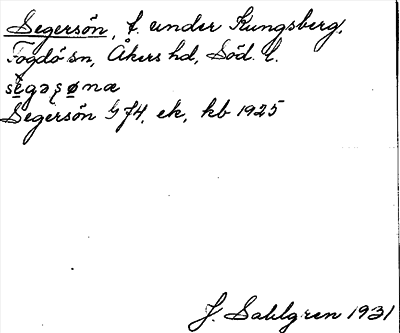 Segersön, t. under Kungsberg,
Fogdö sn, Åkers hd, Söd. l.
Segersön G 74, ek, kb 1925
J. Sahlgren 1931